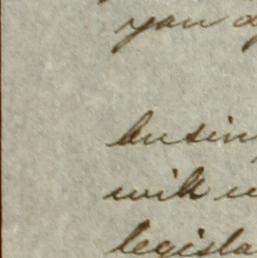 you
busin
will
legisla